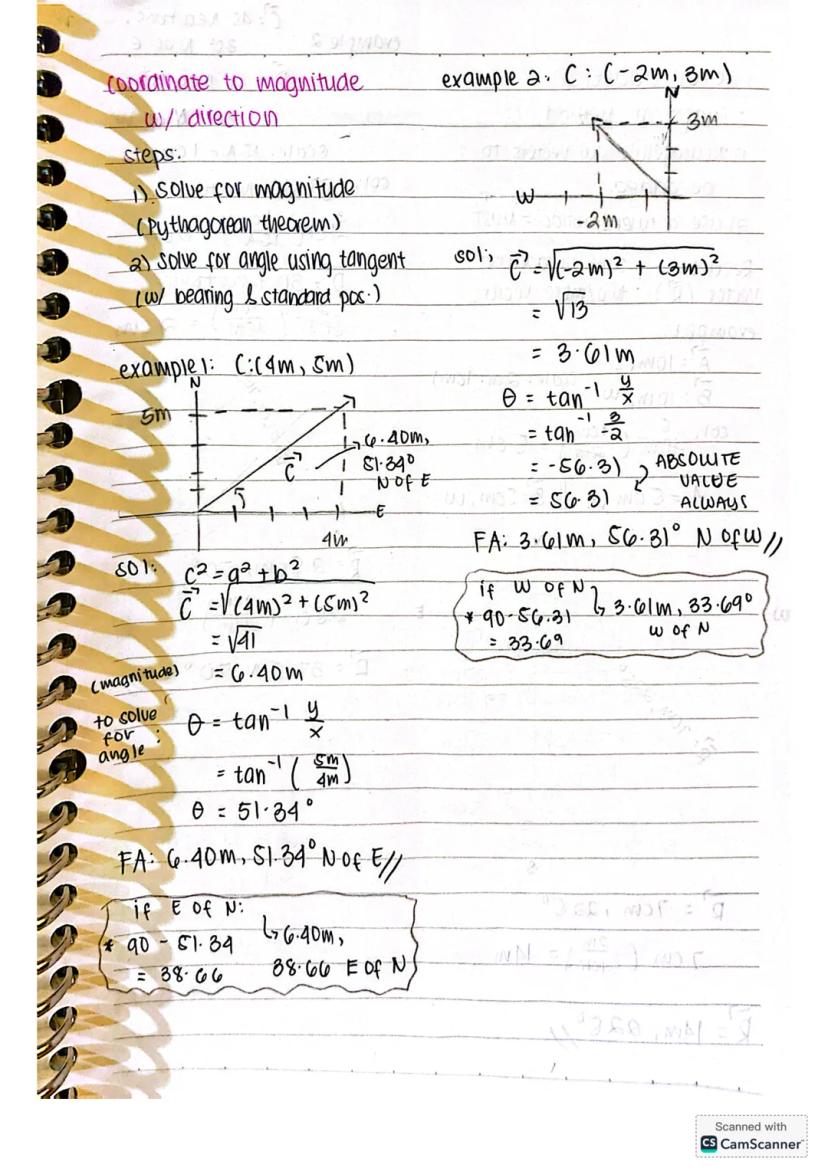 coordinate to magnitude
w/ direction
steps:
1) solve for magnitude
(Pythagorean theorem)
2) solve for angle using tangent
(w/ bearing & standard pos.)
example 1: C:(4m, 5m)
N
5m
C
6.40m,
51.34°
N of E
E
4m
sol:
c² = a² + b²
C = √(4m)² + (5m)²
= √41
(magnitude) = 6.40m
to solve for angle: θ = tan⁻¹ y/x
= tan⁻¹ (5m/4m)
θ = 51.34°
FA: 6.40m, 51.34° N of E//
if E of N:
* 90 - 51.34 ↳ 6.40m,
= 38.66 38.66 E of N
example 2: C: (-2m, 3m)
N
3m
W
-2m
sol:
C = √(-2m)² + (3m)²
= √13
= 3.61m
θ = tan⁻¹ y/x
= tan⁻¹ 3/-2
= -56.31
= 56.31
ABSOLUTE
VALUE
ALWAYS
FA: 3.61m, 56.31° N of W//
if W of N ↳ 3.61m, 33.69°
* 90-56.31 W of N
= 33.69
Scanned with
CS CamScanner